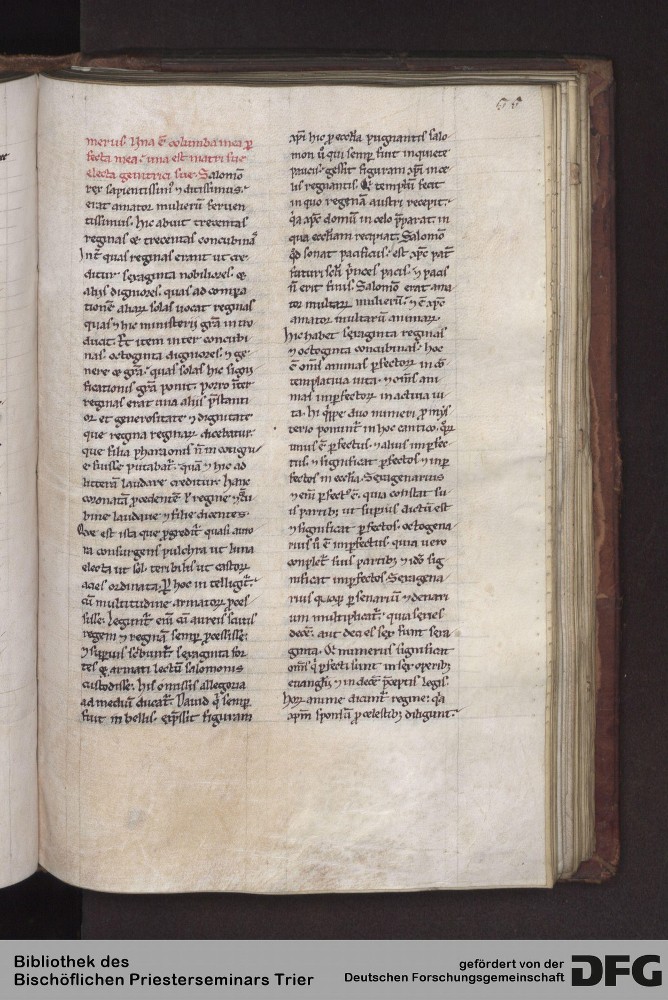 merus. Una ē columba mea ꝑ
fecta mea. una est matri sue
electa genitrici sue. Salomō
rex sapientissim9 ⁊ ditissimus.
erat amator mulierū feruen
tissimus. hic abuit trecentas
reginas et trecentas concubinas
quas reginas erant ut cre
ditur sexaginta nobiliores. et
aliis digniores. quas ad compa
tionē aliaꝝ solas uocat reginas
quas ⁊ hic ministerii grā intro
ducit. Et item inter concubi
nas. octoginta digniores. ⁊ ge
nere et grā. quas solas hic signi
ficationis grā ponit. porro inter
reginas erat una aliis p̄stanti
or et generositate ⁊ dignitate
que regina reginaꝝ dicebatur.
que filia pharaonis
e fuisse putabat̄. quā ⁊ hic ad
litterā laudare creditur hanc
coronatā
bine laudaue ⁊ filie dicentes.
Que est ista que ꝓgredit̄ quasi auro
ra consurgens pulchra ut luna
electa ut sol. teribilis ut castroꝝ
acies ordinata. Per hoc intelligit̄.
cū multitudine armatoꝝ ꝓces
sisse. Leguntur enī cū aureis scutis
regem ⁊ reginā semꝑ ꝓcessisse.
⁊ suꝑius sexaginta for
tes et armati lectū salomonis
custodisse. his omissis allegoria
ad mediū ducat̄. Dauid qi semꝑ
fuit in bellis. exp̄ssit figuram
xp̄i hic ꝓ eccl̄ia pugnantis salo
mon ū qui semꝑ fuit in quiete
pacis. gessit figuram xp̄i in ce
lis regnantis. Qui templū fecit
in quo reginam austri recepit.
q̄a xp̄c domū in celo p̄parat. in
qua eccl̄iam recipiat. Salomō
qd̄ sonat pacificus. est xp̄c pat̄
futuri sc̄li p̄nceps pacis. ⁊ pacis
n̄ erit finis. Salomō erat ama
tor multaꝝ mulierū. ⁊ ē xp̄c
amator multarū animaꝝ.
Hic habet sexaginta reginas
⁊ octoginta concubinas. hoc
ē om̄s animas ꝑfectoꝝ in cō
templatiua uita. ⁊ om̄s ani
mas inperfectoꝝ in actiua ui
ta. hi q̄ippe duo numeri ꝓ mys
terio ponunt̄ in hoc cantico. quoꝝ
unus ē ꝑfectus. ⁊ alius imꝑfec
tus. ⁊ significat ꝑfectos ⁊ inꝑ
fectos in eccl̄ia. Sexagenarius
⁊ enī ꝑfectus ē. quia constat su
is partibꝫ ut suꝑius dictū est
⁊ significat ꝑfectos. octogena
rius ū ē imꝑfectus. quia uero
conplet̄ suis partibꝫ ⁊ ido sig
nificat imꝑfectos. Sexagena
rius quoqꝫ ꝑ senariū ⁊ denari
um multiplicat̄. quia series
decē. aut decies sex sunt sexa
ginta. Qi numerus significat
om̄s qi ꝑfecti sunt in sex operibꝫ
euangelii. ⁊ in decē p̄ceptis legis.
Hoꝝ anime dicunt̄ regine. q̄a
xp̄m sponsū ꝓ celestibꝫ diligunt.
Bibliothek des
Bischöflichen Priesterseminars Trier
gefördert von der
Deutschen Forschungsgemeinschaft
DFG